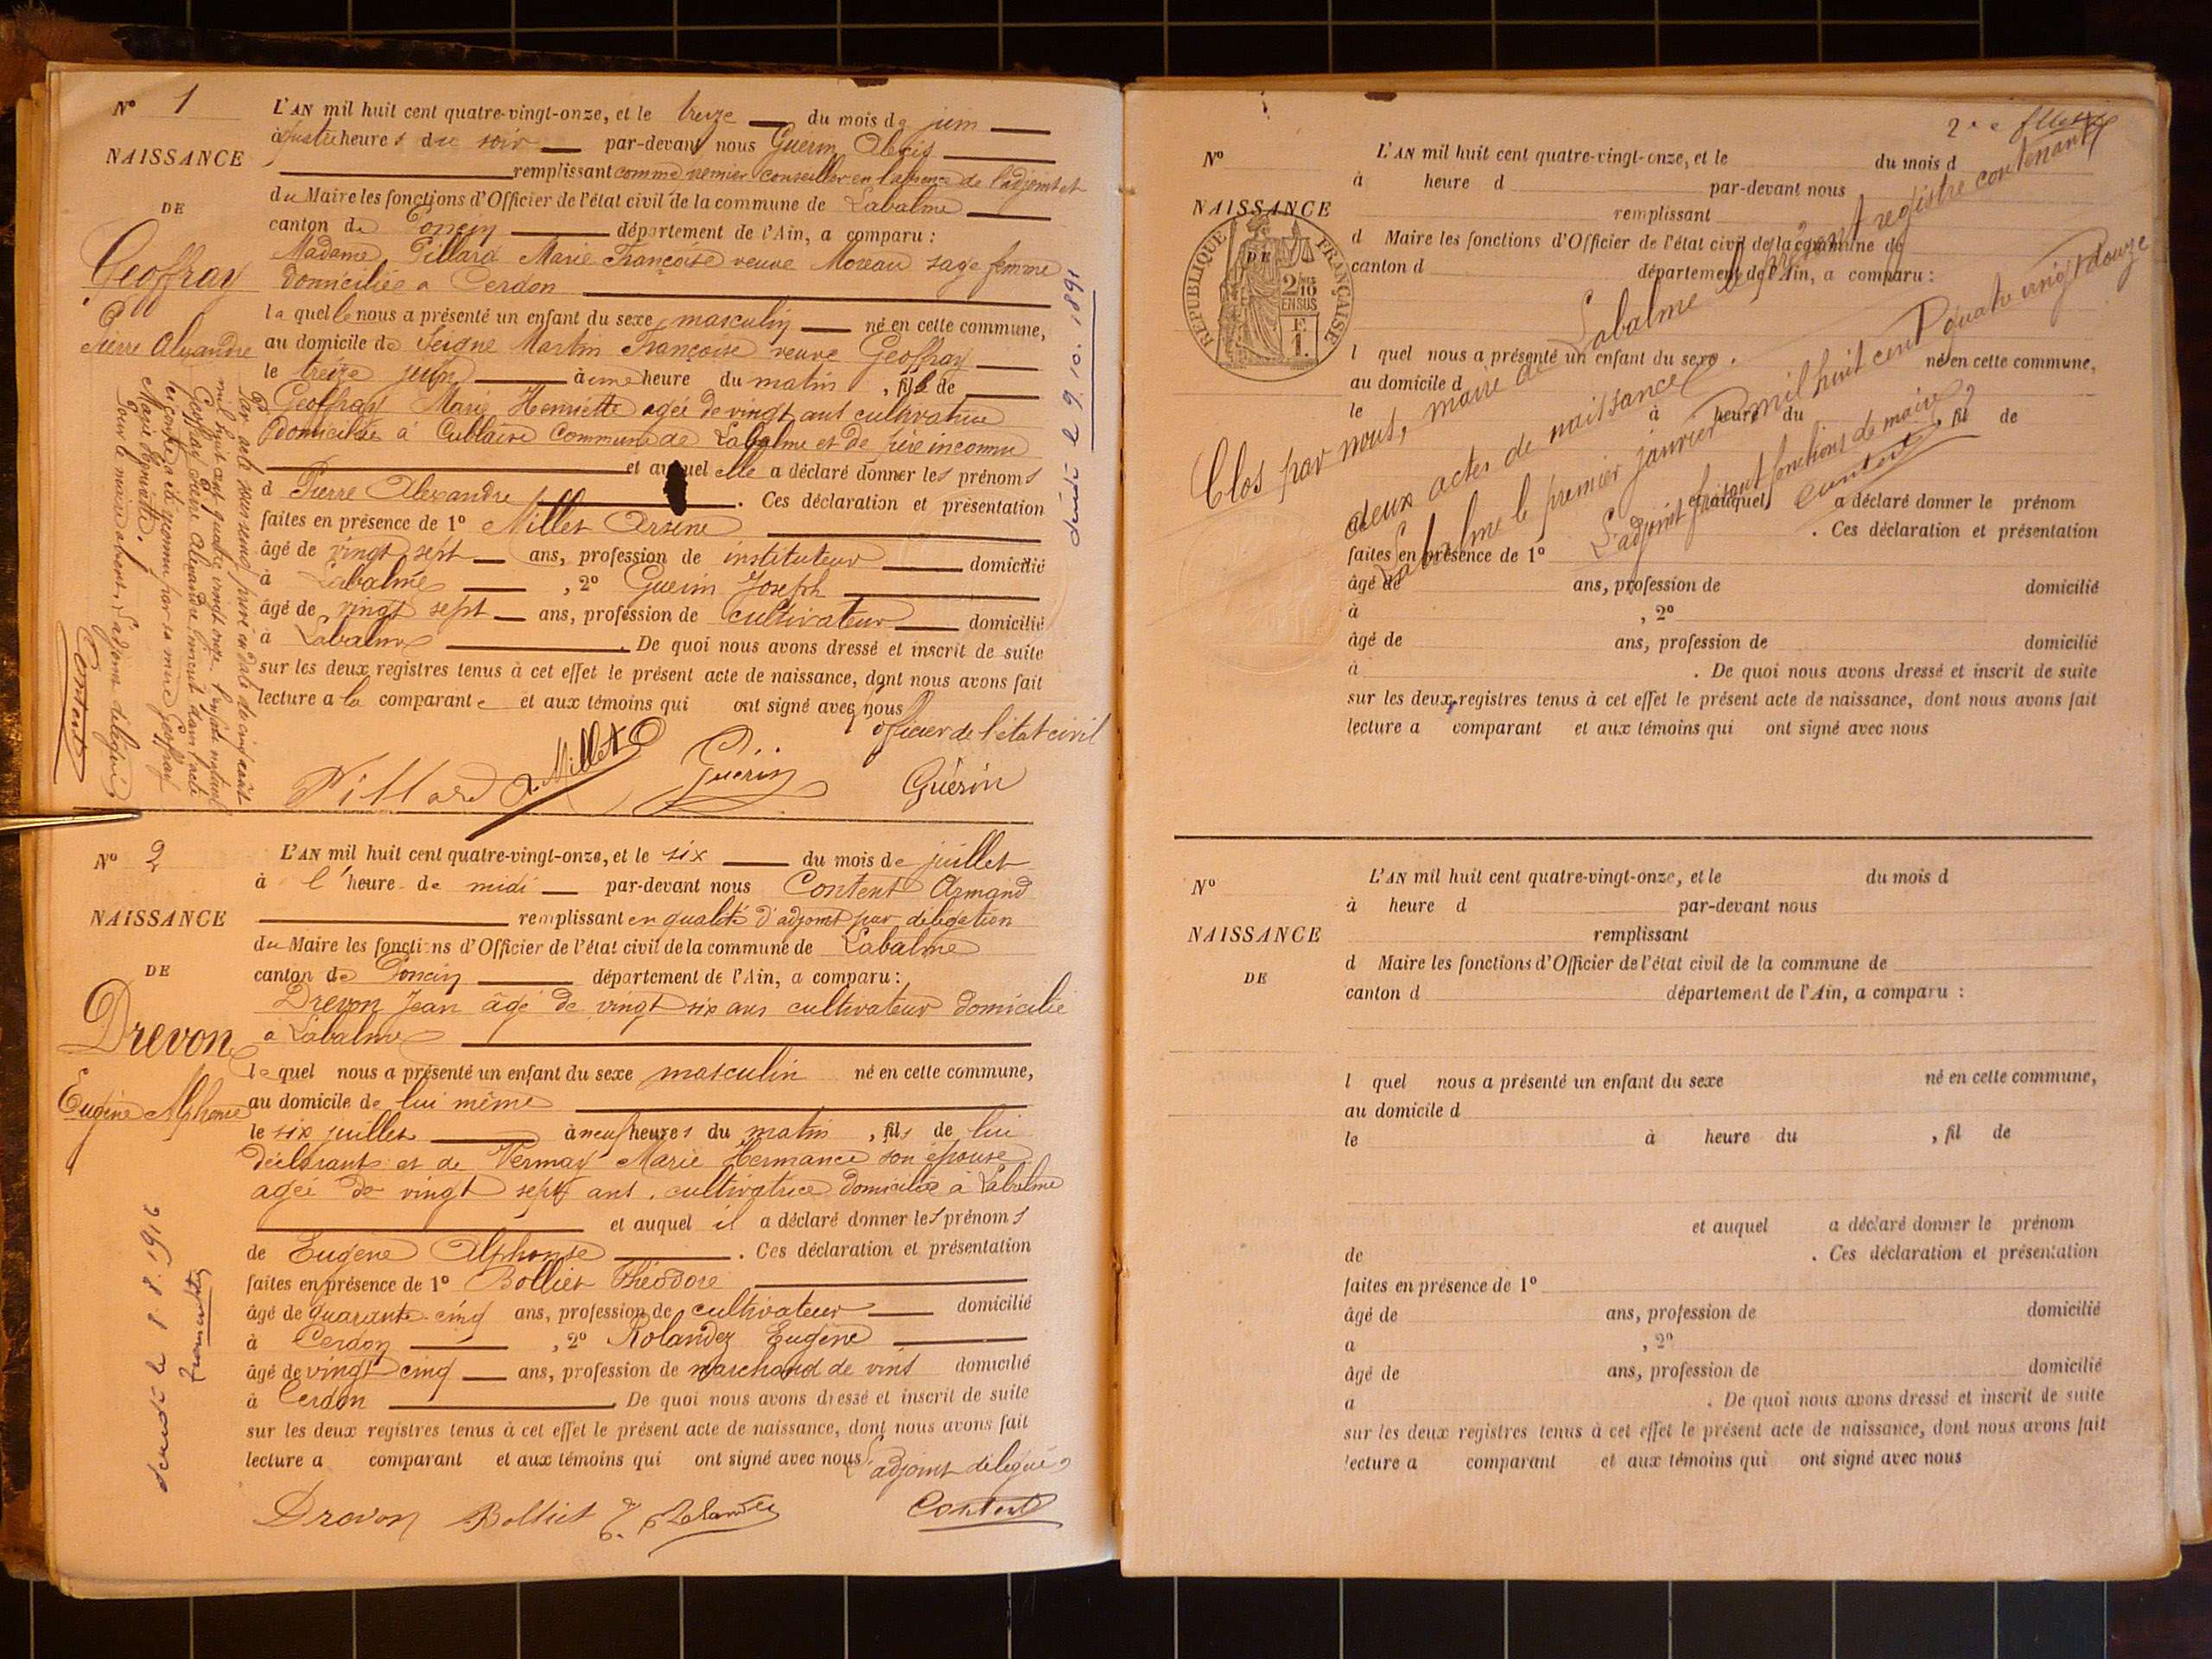 N° 1
NAISSANCE
DE
Geoffray
Pierre Alexandre
L'AN mil huit cent quatre-vingt-onze, et le treize du mois de juin
à quatre heures du soir par-devant nous Guerin Alexis
remplissant comme premier conseiller en l'absence de l'adjoint et
du Maire les fonctions d'Officier de l'état civil de la commune de Labalme
canton de Poncin département de l'Ain, a comparu :
Madame Pillard Marie Françoise veuve Moreau sage femme
domiciliée a Cerdon
la quelle nous a présenté un enfant du sexe masculin né en cette commune,
au domicile de Seigne Martin Françoise veuve Geoffray
le treize juin à une heure du matin, fils de
Geoffray Marie Henriette agée de vingt ans cultivatrice
domiciliée à Cullaire commune de Labalme et de père inconnu
et auquel elle a déclaré donner les prénoms
d Pierre Alexandre . Ces déclaration et présentation
faites en présence de 1° Millet Arsène
âgé de vingt sept ans, profession de instituteur domicilié
à Labalme , 2° Guerin Joseph
âgé de vingt sept ans, profession de cultivateur domicilié
à Labalme . De quoi nous avons dressé et inscrit de suite
sur les deux registres tenus à cet effet le présent acte de naissance, dont nous avons fait
lecture a la comparante et aux témoins qui ont signé avec nous
officier de l'état civil
Pillard A Millet Guérin Guérin
Par acte sous seing privé en date du cinq août
mil huit cent quatre vingt onze l'enfant naturel
Geoffray Pierre Alexandre dénommé dans l'acte
ci-contre a été reconnu par sa mère Geoffray
Marie Henriette.
Pour le maire absent, L'adjoint délégué
Content
décédé le 9.10.1891
N° 2
NAISSANCE
DE
Drevon
Eugène Alphonse
L'AN mil huit cent quatre-vingt-onze, et le six du mois de juillet
à l'heure de midi par-devant nous Content Armand
remplissant en qualité d'adjoint par délégation
du Maire les fonctions d'Officier de l'état civil de la commune de Labalme
canton de Poncin département de l'Ain, a comparu :
Drevon Jean âgé de vingt six ans cultivateur domicilié
a Labalme
le quel nous a présenté un enfant du sexe masculin né en cette commune,
au domicile de lui même
le six juillet à neuf heures du matin , fils de lui
déclarant et de Vermay Marie Hermance son épouse
agée de vingt sept ans. cultivatrice domiciliée à Labalme
et auquel il a déclaré donner les prénoms
de Eugène Alphonse . Ces déclaration et présentation
faites en présence de 1° Bolliet Théodore
âgé de quarante-cinq ans, profession de cultivateur domicilié
à Cerdon , 2° Rolandez Eugène
âgé de vingt cinq ans, profession de marchand de vins domicilié
à Cerdon . De quoi nous avons dressé et inscrit de suite
sur les deux registres tenus à cet effet le présent acte de naissance, dont nous avons fait
lecture a comparant et aux témoins qui ont signé avec nous
L'adjoint délégué
Drevon Bolliet E. Rolandez Content
décédé le 1.8.1916
N°
NAISSANCE
DE
RÉPUBLIQUE FRANÇAISE
2/10 EN SUS
F.
1.
L'AN mil huit cent quatre-vingt-onze, et le du mois d
à heure d par-devant nous
remplissant
d Maire les fonctions d'Officier de l'état civil de la commune de
canton d département de l'Ain, a comparu :
l quel nous a présenté un enfant du sexe né en cette commune,
au domicile d
le à heure du , fil de
et auquel a déclaré donner le prénom
de . Ces déclaration et présentation
faites en présence de 1°
âgé de ans, profession de domicilié
à , 2°
âgé de ans, profession de domicilié
à . De quoi nous avons dressé et inscrit de suite
sur les deux registres tenus à cet effet le présent acte de naissance, dont nous avons fait
lecture a comparant et aux témoins qui ont signé avec nous
Clos par nous, maire de Labalme le présent registre contenant
deux actes de naissance.
Labalme le premier janvier mil huit cent quatre vingt douze
L'adjoint faisant fonctions de maire
Content
N°
NAISSANCE
DE
L'AN mil huit cent quatre-vingt-onze, et le du mois d
à heure d par-devant nous
remplissant
d Maire les fonctions d'Officier de l'état civil de la commune de
canton d département de l'Ain, a comparu :
l quel nous a présenté un enfant du sexe né en cette commune,
au domicile d
le à heure du , fil de
et auquel a déclaré donner le prénom
de . Ces déclaration et présentation
faites en présence de 1°
âgé de ans, profession de domicilié
a , 2°
âgé de ans, profession de domicilié
a . De quoi nous avons dressé et inscrit de suite
sur les deux registres tenus à cet effet le présent acte de naissance, dont nous avons fait
lecture a comparant et aux témoins qui ont signé avec nous